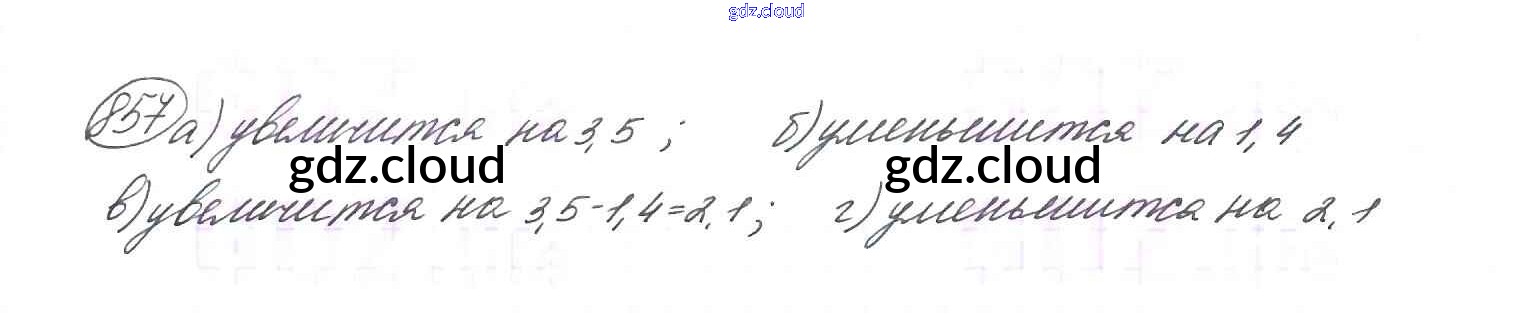 gdz.cloud
857 а) увеличится на 3,5 ; б) уменьшится на 1,4
gdz.cloud gdz.cloud
в) увеличится на 3,5-1,4=2,1; г) уменьшится на 2,1